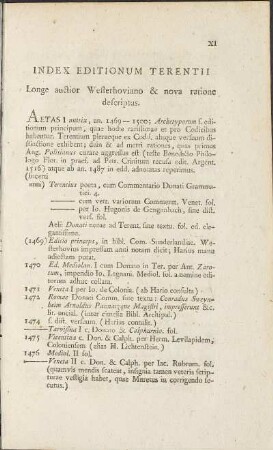 XI
INDEX EDITIONUM TERENTII
Longe auctior Westerhoviano & nova ratione
descriptus.
AETAS I natrix, an. 1469—1500; Archetyporum f. editionum
principum, quae hodie rarissimae et pro Codicibus
habentur. Terentium pleraeque ex Codd. absque versuum distinctione
exhibent; dein & ad metri rationes, quas primus
Ang. Politianus curate assignasse est (teste Benedicto Philologo
Flor. in praef. ad Petr. Criniтum recusa edit. Argent.
1516) usque ab an. 1487 in edd. adnotatas reperimus.
(Incerti
anni) Terentius poeta, cum Commentario Donati Grammatici.
4.
— cum vett. variorum Comment. Venet. fol.
— per Io. Hugonis de Gengenbach, sine dist.
vers. fol.
Aelii Donati notae ad Terent. sine textu. fol. ed. elegantissima.
(1469) Editio princeps, in bibl. Com. Sunderlandiae. Westerhovius
impressam anni notam dicit; Harius manu
adscriptam putat.
1470 Ed. Mediolan. I cum Donato in Ter. per Ant. Zarotum,
impendio Io. Legnani. Mediol. fol. a nemine editorum
adhuc collata.
1471 Veneta I per Io. de Colonia. (ab Hario consulta)
1472 Romae Donati Comm. sine textu: Conradus Sweynheim
Arnoldus Pannartzque Magistri, impresserunt &c.
lit. uncial. (inter cimelia Bibl. Archipal.)
1474 f. dist. versuum. (Harius consult.)
— Tarvisina I c. Donato & Calphurnio. fol.
1475 Vicentina c. Don. & Calph. per Herm. Levilapidem,
Coloniensem (alias H. Lichtenstein.)
1476 Mediol. II fol.
— Veneta II c. Don. & Calph. per Iac. Rubrum. fol.
(quamvis mendis scateat, insignia tamen veteris scripturae
vestigia habet, quae Muretus in corrigendo secutus.)